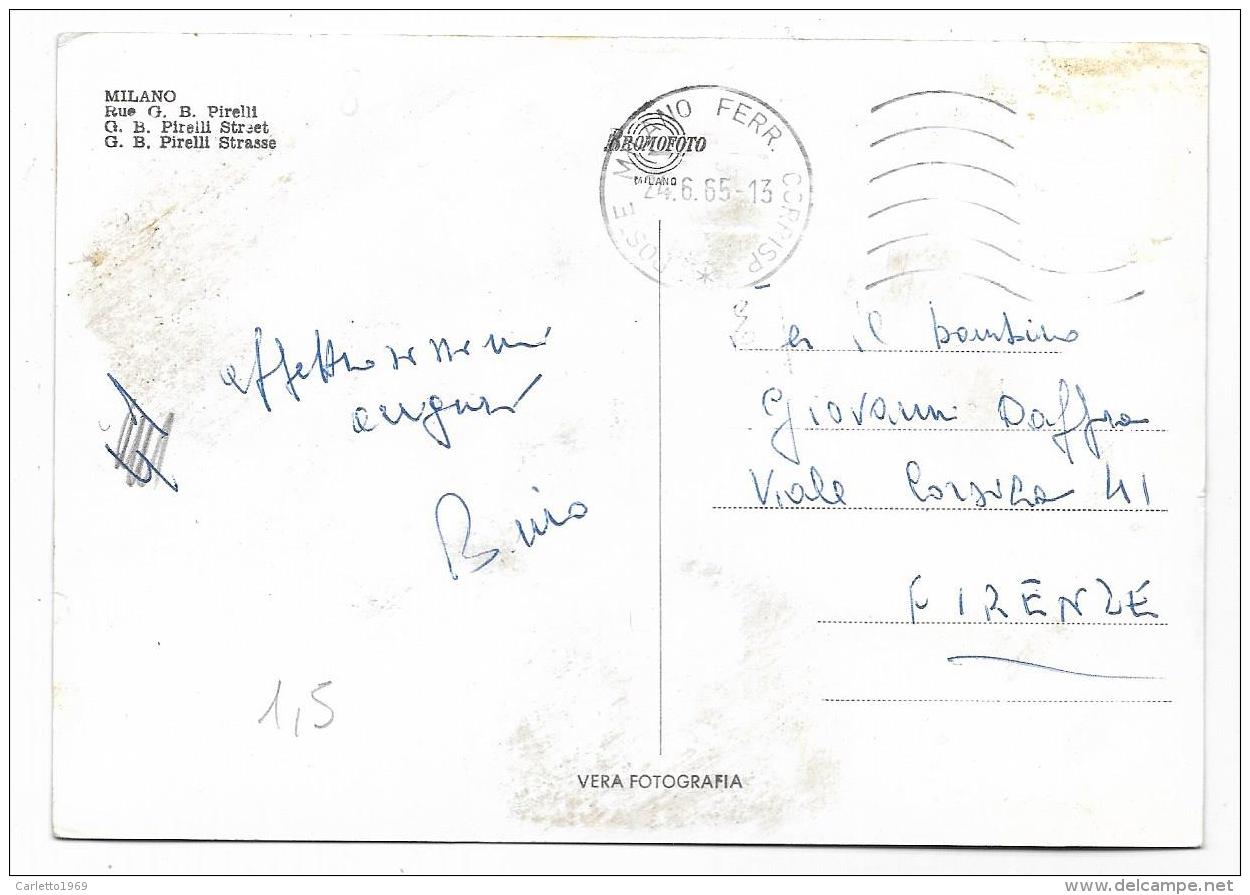 MILANO
Rue G. B. Pirelli
G. B. Pirelli Street
G. B. Pirelli Strasse
POSTE MILANO FERR. CORRISP *
24.6.65-13
BROMOFOTO
MILANO
affettuosissimi
auguri
Per il bambino
Giovanni Daffra
Viale Corsica 41
FIRENZE
1,5
VERA FOTOGRAFIA
Carletto1969
www.delcampe.net